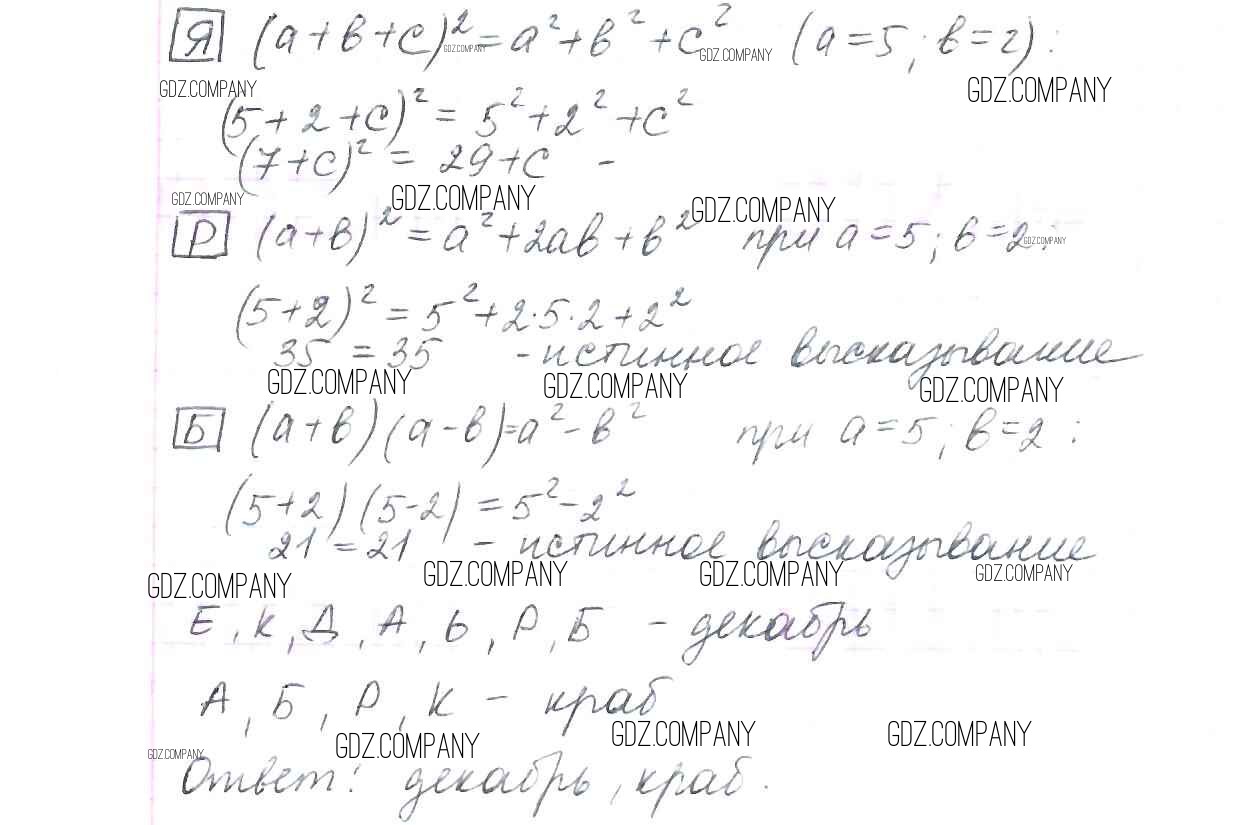 Я (a+в+c)² = a²+в²+c² (a=5; в=2):
GDZ.COMPANY GDZ.COMPANY
GDZ.COMPANY GDZ.COMPANY
(5+2+c)² = 5²+2²+c²
(7+c)² = 29+c -
GDZ.COMPANY GDZ.COMPANY GDZ.COMPANY
Р (a+в)² = a²+2aв+в² при a=5; в=2:
GDZ.COMPANY
(5+2)² = 5²+2·5·2+2²
35 = 35 - истинное высказывание
GDZ.COMPANY GDZ.COMPANY GDZ.COMPANY
Б (a+в)(a-в)=a²-в² при a=5; в=2:
(5+2)(5-2) = 5²-2²
21 = 21 - истинное высказывание
GDZ.COMPANY GDZ.COMPANY GDZ.COMPANY GDZ.COMPANY
Е, К, Д, А, Ь, Р, Б - декабрь
А, Б, Р, К - краб
GDZ.COMPANY GDZ.COMPANY GDZ.COMPANY GDZ.COMPANY
Ответ: декабрь, краб.